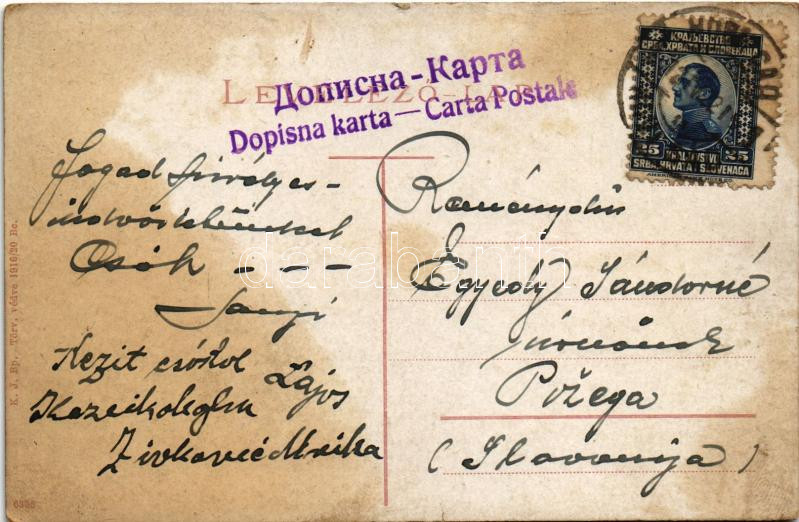 LEVELEZŐ-LAP
Дописна-Карта
Dopisna karta — Carta Postale
КРАЉЕВСТВО
СРБА, ХРВАТА И СЛОВЕНАЦА
25 25
KRALJEVSTVO
SRBA, HRVATA I SLOVENACA
Fogad szivélyes-
üdvözletünket
Csók - - -
Sanyi
Kezit csókol
Lajos
Kezeikolegku
Zivkovic
Egyedy Sándorné
úrnőnek
Požega
(Slavonija)
K. J. Bp. Törv. védve 1916/20 Bc.
darabanth